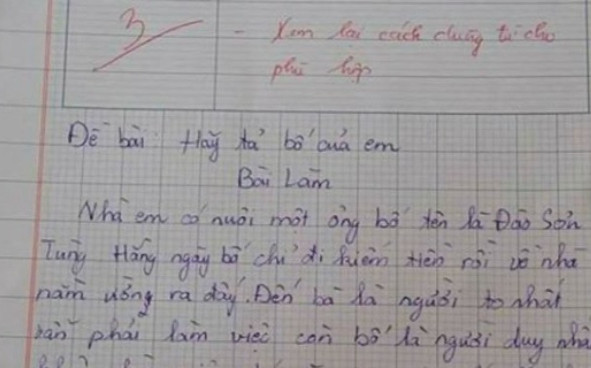 3
- Xem lại cách dùng từ cho
phù hợp
Đề bài: Hãy tả bố của em
Bài Làm
Nhà em có nuôi một ông bố tên là Đào Sơn
Tùng Hằng ngày bố chỉ đi kiếm tiền rồi về nhà
nằm ườn ra đấy. Đến bà là người to nhất
vẫn phải làm việc còn bố là người duy nhấ